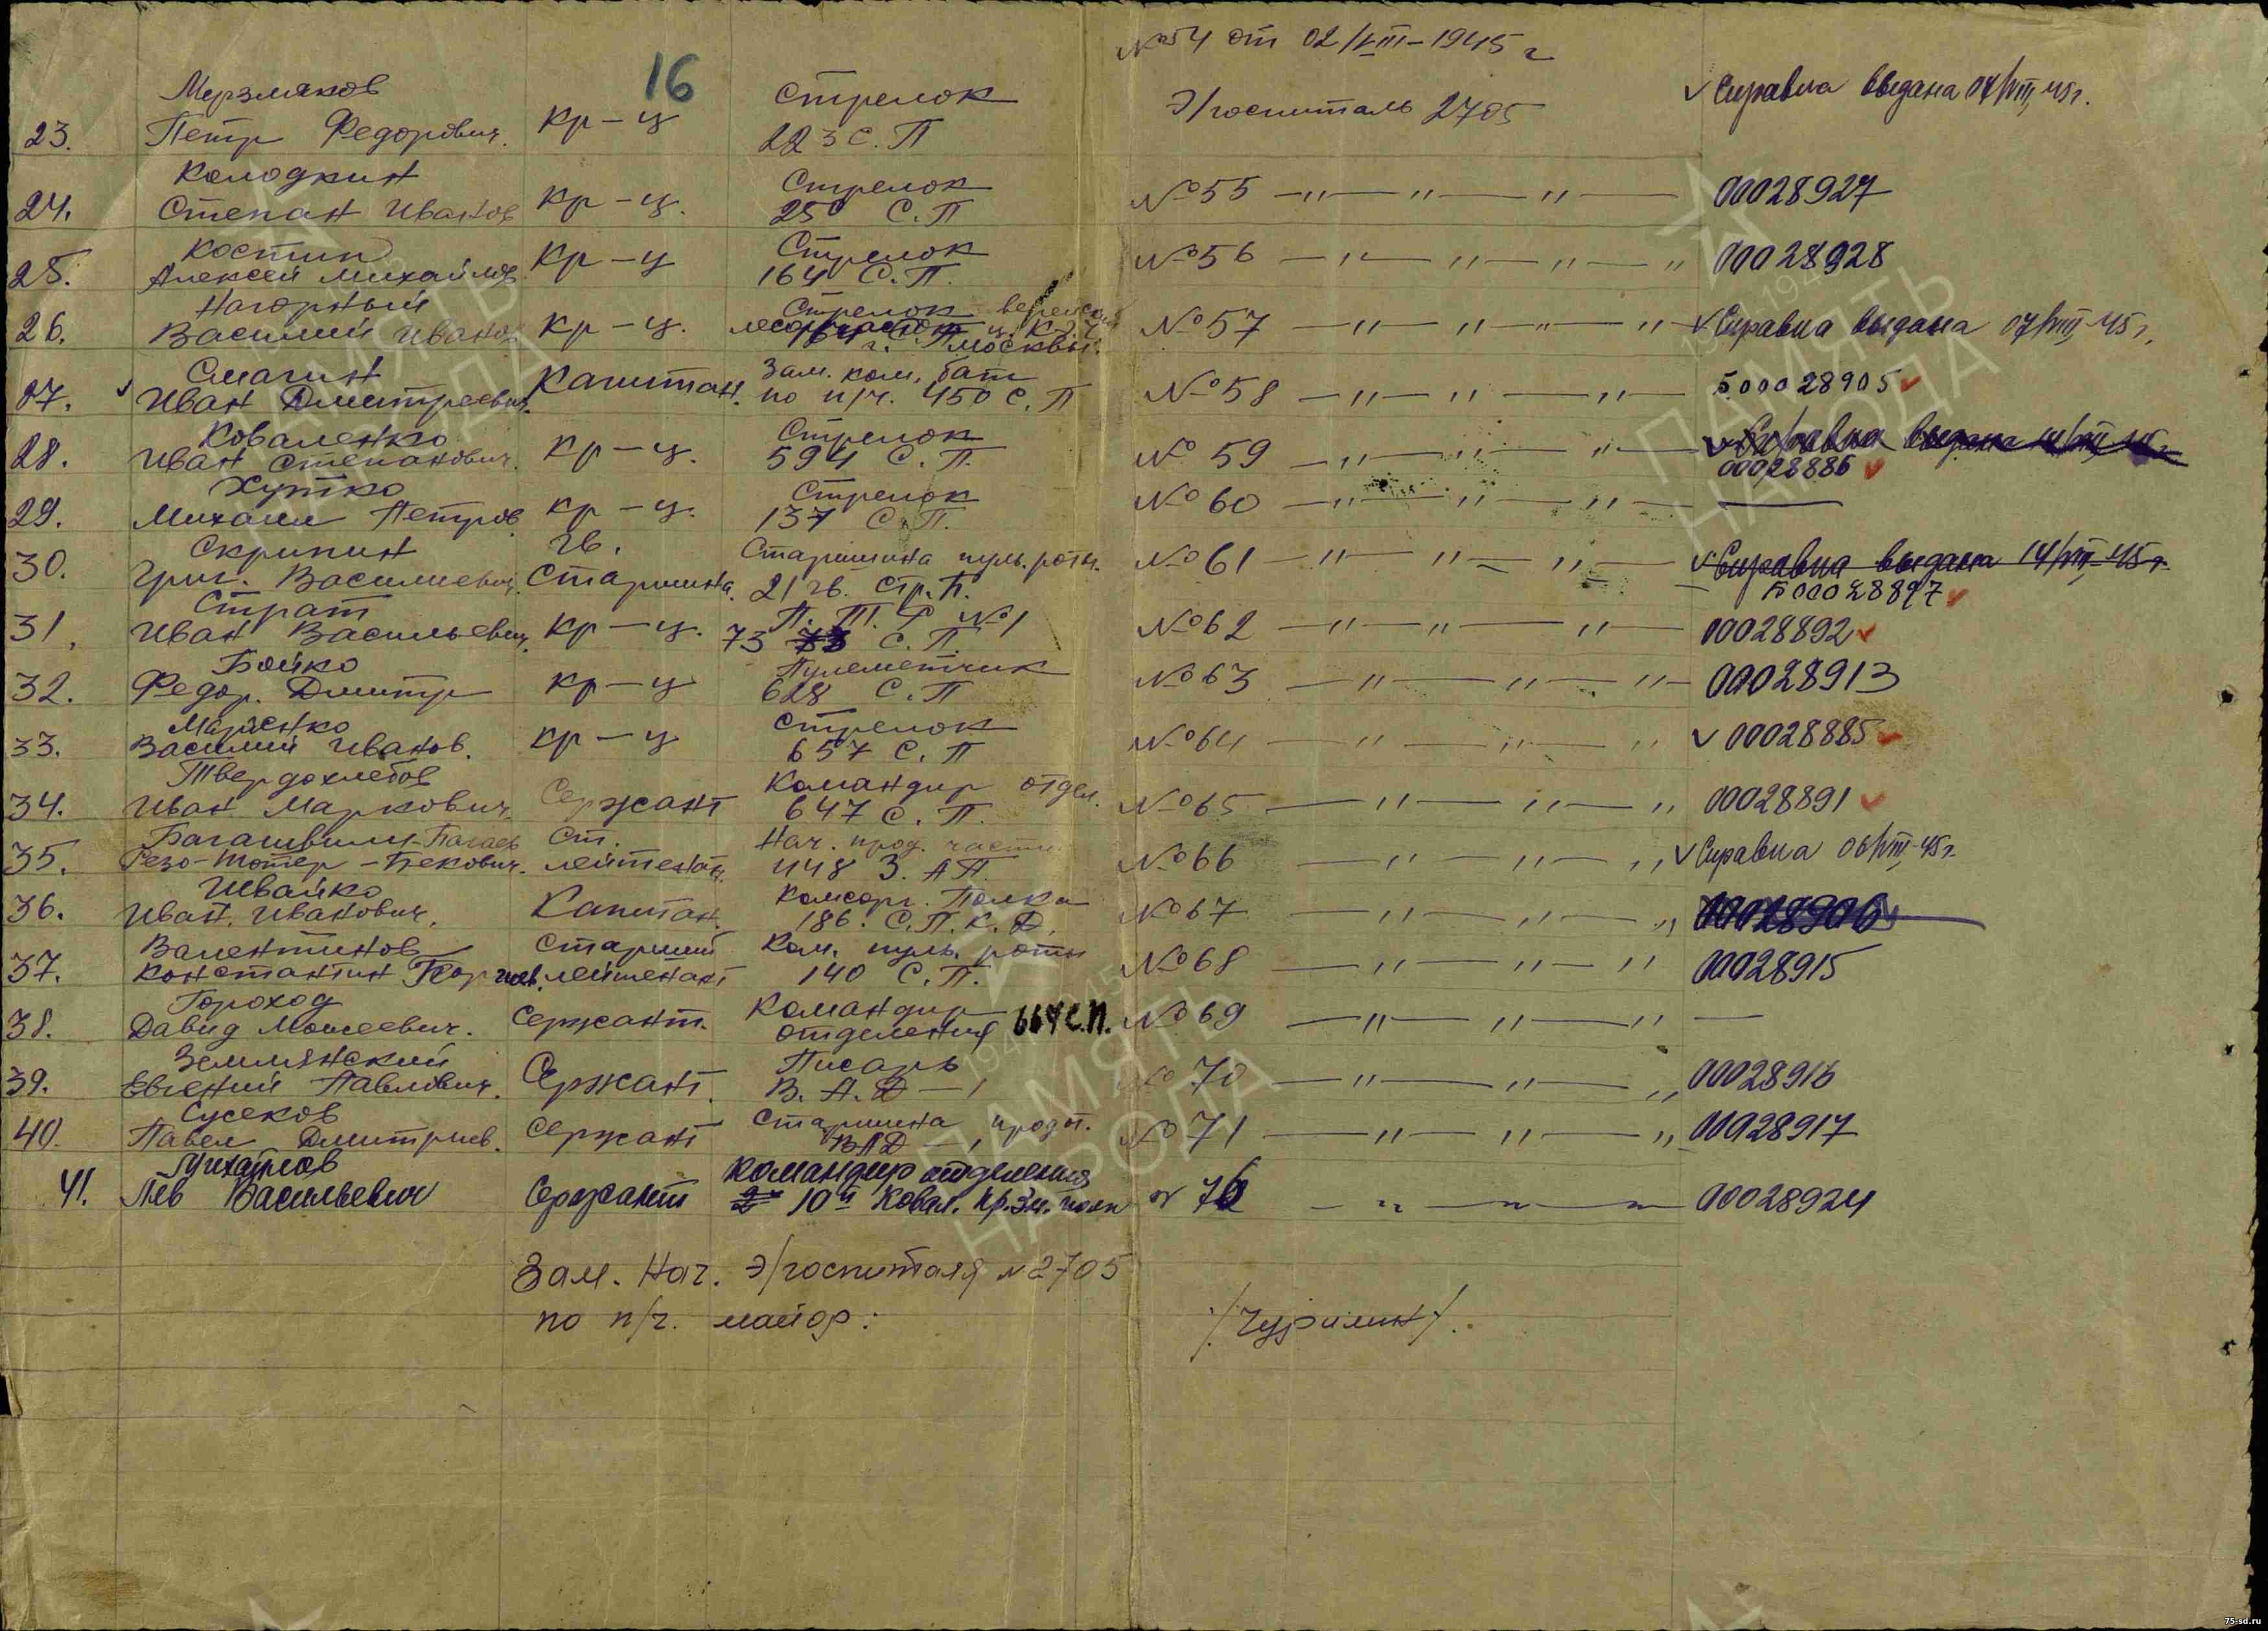 16
№54 от 02/VIII-1945 г
Мерзляков
Стрелок
23. Петр Федорович. кр-ц 223 С.П
Э/госпиталь 2705
✓ Справка выдана 07/VIII-45 г.
Колодкин
Стрелок
24. Степан Иванов кр-ц. 250 С.П №55 —„— „ — „ — 00028927
Костин
Стрелок
25. Алексей Михайлов. кр-ц 164 С.П. №56 —„— „ — „ — „ 00028928
Нагорный
Стрелок
26. Василий Иванов кр-ц. №57 —„— „ — „ — „ ✓ Справка выдана 07/VIII-45 г.
г. Москвы.
Смагин
Зам. ком. бат
27. ✓ Иван Дмитреевич. Капитан. по п/ч. 450 С.П №58 —„— „ — „ — Б00028905 ✓
Коваленко
Стрелок
28. Иван Степанович. кр-ц. 594 С.П. №59 —„— „ — „ — ✓ Справка выдана
00028886 ✓
Хутко
Стрелок
29. Михаил Петров кр-ц. 137 С.П. №60 —„— „ — „ — —
Скрипин
гв.
Старшина пуль. роты.
30. Григ. Василиевич. Старшина. 21 гв. Стр.П. №61 —„— „ — „ — ✓ Справка выдана 14/VIII-45 г.
Б00028897 ✓
Страт
П.Т.Р №1
31. Иван Васильевич. кр-ц. 73 С.П. №62 —„— „ — „ — 00028892 ✓
Бойко
Пулеметчик
32. Федор. Дмитр кр-ц 628 С.П №63 —„— „ — „ — 00028913
Марченко
Стрелок
33. Василий Иванов. кр-ц 657 С.П №64 —„— „ — „ ✓ 00028885 ✓
Твердохлебов
Командир отдел.
34. Иван Маркович. Сержант 647 С.П. №65 —„— „ — „ 00028891 ✓
Ст.
Нач. прод. части
35. лейтенант. 448 З.АП. №66 —„— „ — „ ✓ Справка 06/VIII-45 г.
Швайко
Комсорг. Полка
36. Иван. Иванович. Капитан. 186. С.П.К.Д. №67 —„— „ — „ 00028906
Валентинов
Старший
Ком. пуль. роты
37. Константин Георгиев. лейтенант 140 С.П. №68 —„— „ — „ 00028915
Гороход
Командир
38. Давид Моисеевич. Сержант. отделения 664 С.П. №69 —„— „ — „ —
Землянский
Писарь
39. Евгений Павлович. Сержант. В.А.Д-1 №70 —„— „ — „ 00028916
Сусеков
40. Павел Дмитриев. Сержант Старшина
ВАД-1
№71 —„— „ — „ 00028917
Командир отделения
41. Лев Васильевич Сержант 10й Кавал. № 72 — „ — „ — „ — 00028924
Зам. Нач. Э/госпиталя №2705
по п/ч. майор: /Чурилин/.
ПАМЯТЬ
НАРОДА
75-sd.ru